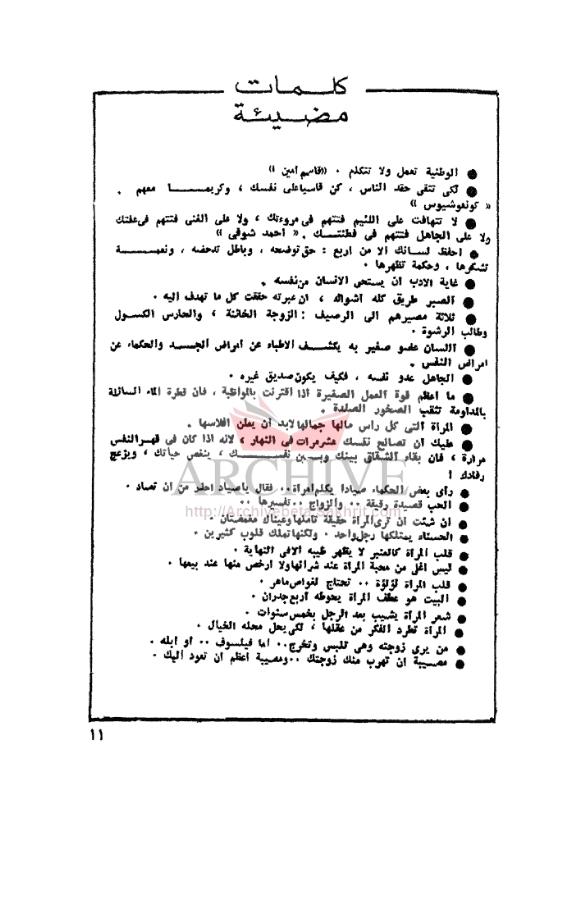 كلمات
مضيئة
● الوطنية تعمل ولا تتكلم . «قاسم أمين »
● لكى تتقى حقد الناس ، كن قاسيا على نفسك ، وكريما معهم .
« كونفوشيوس »
● لا تتهافت على اللئيم فتتهم فى مروءتك ، ولا على الغنى فتتهم فى عفتك
ولا على الجاهل فتتهم فى فطنتك . « أحمد شوقى »
● احفظ لسانك الا من اربع : حق توضحه ، وباطل تدحضه ، ونعمة
تشكرها ، وحكمة تظهرها .
● غاية الادب ان يستحى الانسان من نفسه .
● الصبر طريق كله أشواك ، ان عبرته حققت كل ما تهدف اليه .
● ثلاثة مصيرهم الى الرصيف : الزوجة الخائنة ، والحارس الكسول
وطالب الرشوة .
● اللسان عضو صغير به يكشف الاطباء عن أمراض الجسد والحكماء عن
امراض النفس .
● الجاهل عدو نفسه ، فكيف يكون صديق غيره .
● ما اعظم قوة العمل الصغيرة اذا اقترنت بالمواظبة ، فان قطرة الماء السائلة
بالمداومة تثقب الصخور الصلدة .
● المرأة التى كل رأس مالها جمالها لابد أن يعلن افلاسها .
● عليك ان تصالح نفسك عشر مرات فى النهار ، لانه اذا كان فى قهر النفس
مرارة ، فان بقاء الشقاق بينك وبين نفسك ، ينغص حياتك ، ويزعج
رقادك !
● رأى بعض الحكماء صيادا يكلم امرأة .. فقال ياصياد احذر من ان تصاد .
● الحب قصيدة رقيقة .. والزواج .. تفسيرها ..
● ان شئت ان ترى المرأة حقيقة تأملها وعيناك مغمضتان .
● الحسناء يمتلكها رجل واحد . ولكنها تملك قلوب كثيرين .
● قلب المرأة كالعنبر لا يظهر طيبه الا فى النهاية .
● ليس اغلى من محبة المرأة عند شرائها ولا ارخص منها عند بيعها .
● قلب المرأة لؤلؤة .. تحتاج لغواص ماهر .
● البيت هو عطف المرأة يحوطه أربع جدران .
● شعر المرأة يشيب بعد الرجل بخمس سنوات .
● المرأة تطرد الفكر من عقلها ، لكى يحل محله الخيال .
● من يرى زوجته وهى تلبس وتخرج .. اما فيلسوف .. أو ابله .
● مصيبة ان تهرب منك زوجتك .. ومصيبة اعظم ان تعود اليك .
ARCHIVE
http://Archivebeta.Sakhrit.com
١١